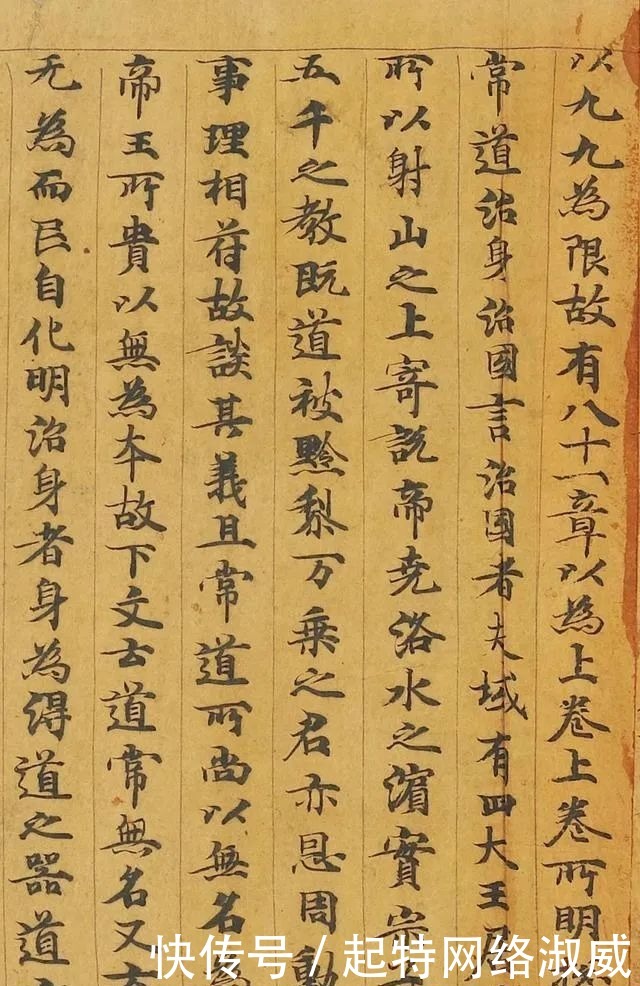 以九九為限故有八十一章以為上卷上卷所明
常道治身治國言治國者夫域有四大王居
所以射山之上寄説帝尭洛水之濵實宗
五千之教既道被黔黎万乗之君亦恩周動
事理相符故談其義且常道所尚以無名為
帝王所貴以無為本故下文云道常無名又
无為而民自化明治身者身為得道之器道
快传号/起特网络淑威